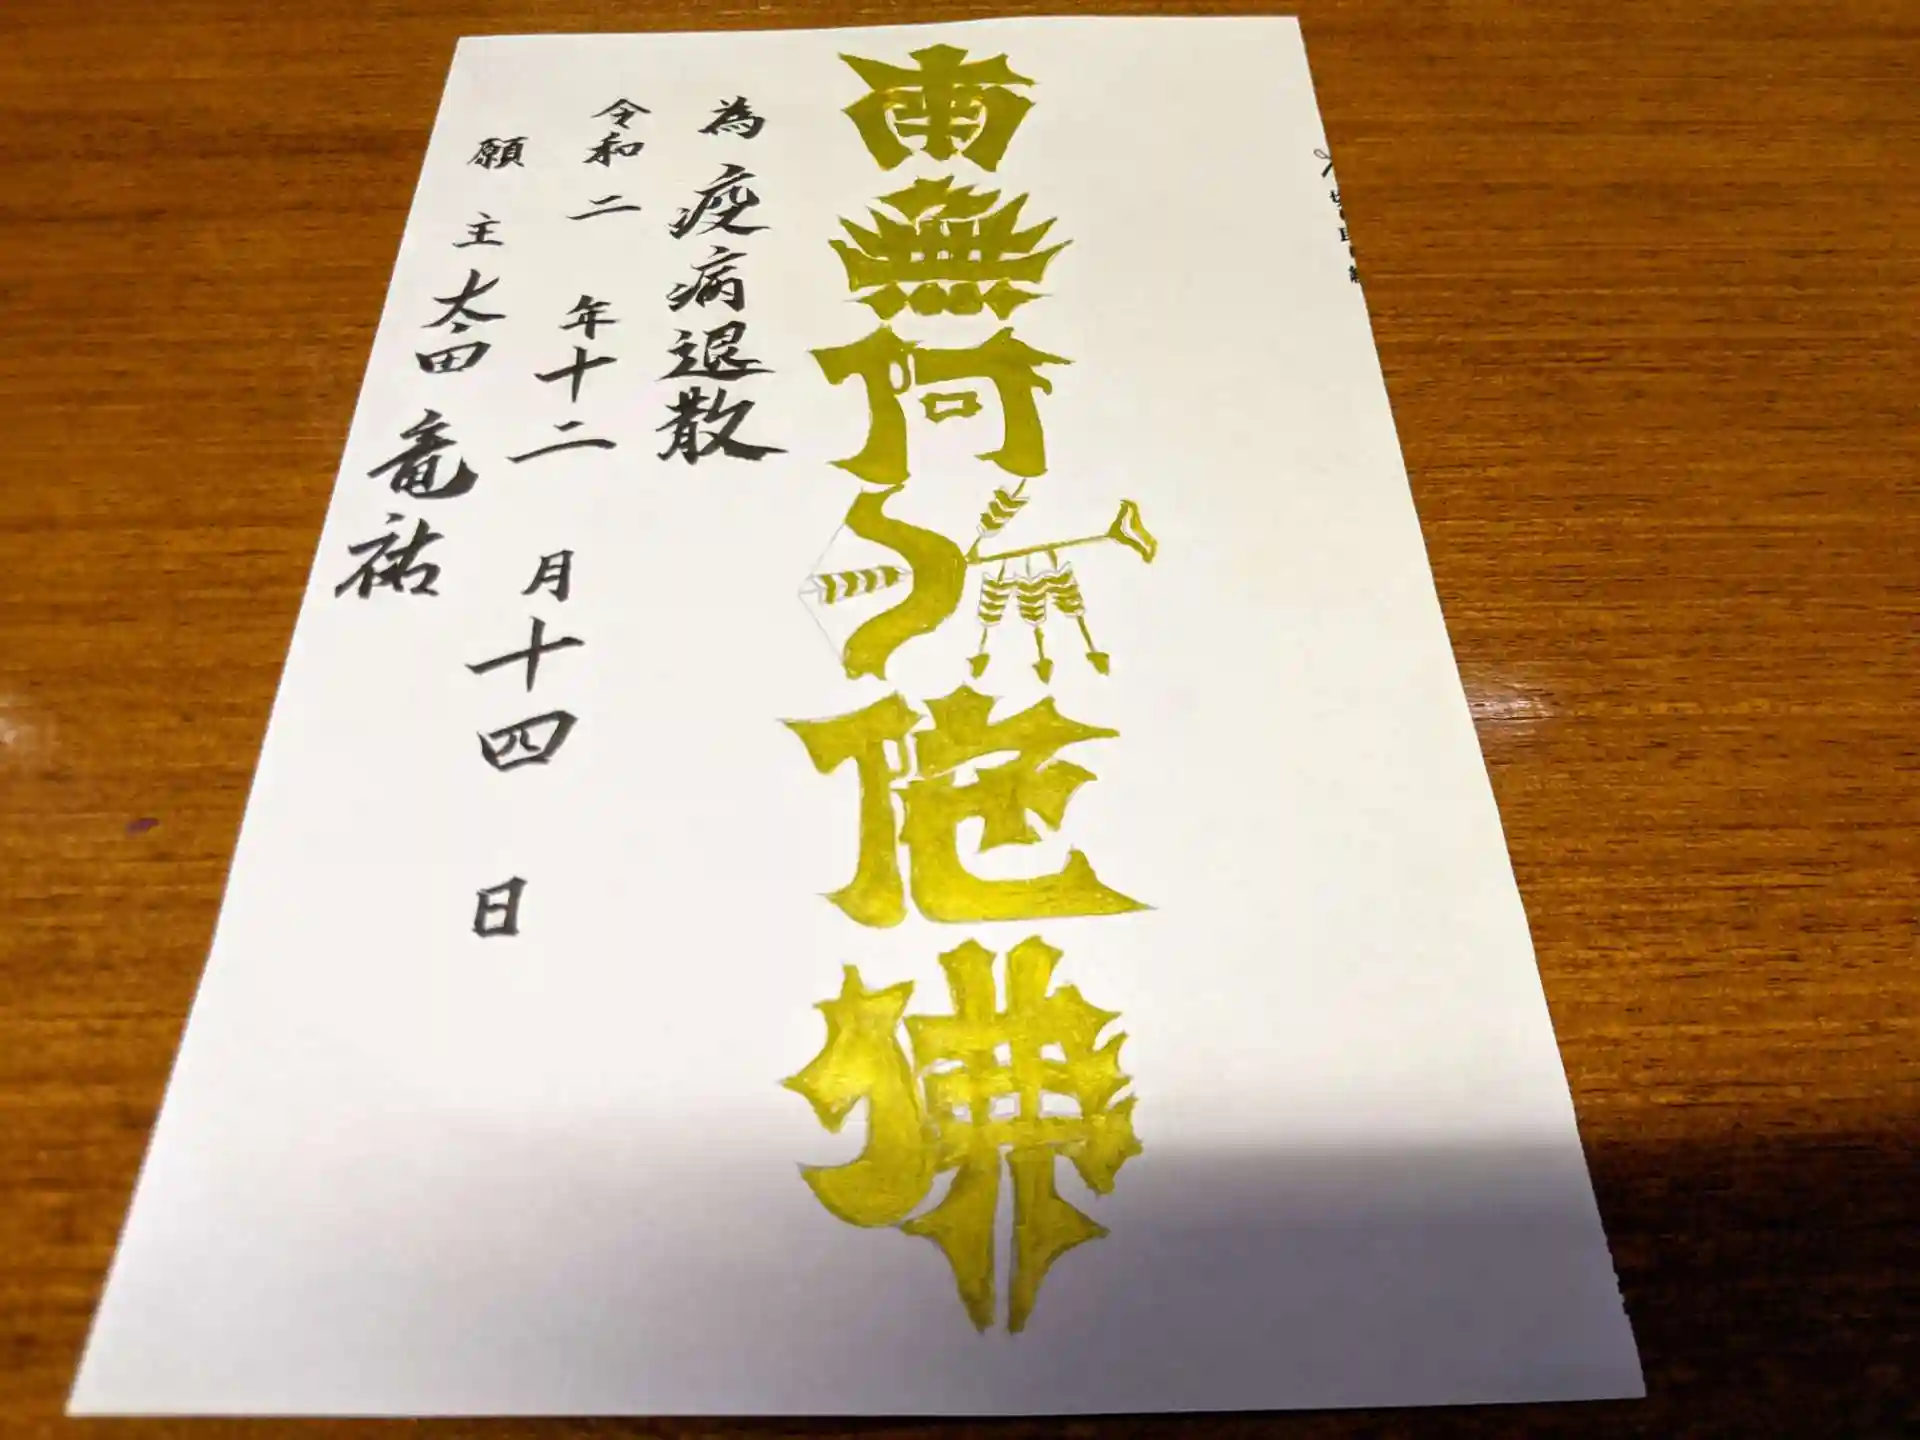 南無阿弥陀佛
為 疫病退散
令和 二 年十二 月十四 日
願 主 太田 竜祐